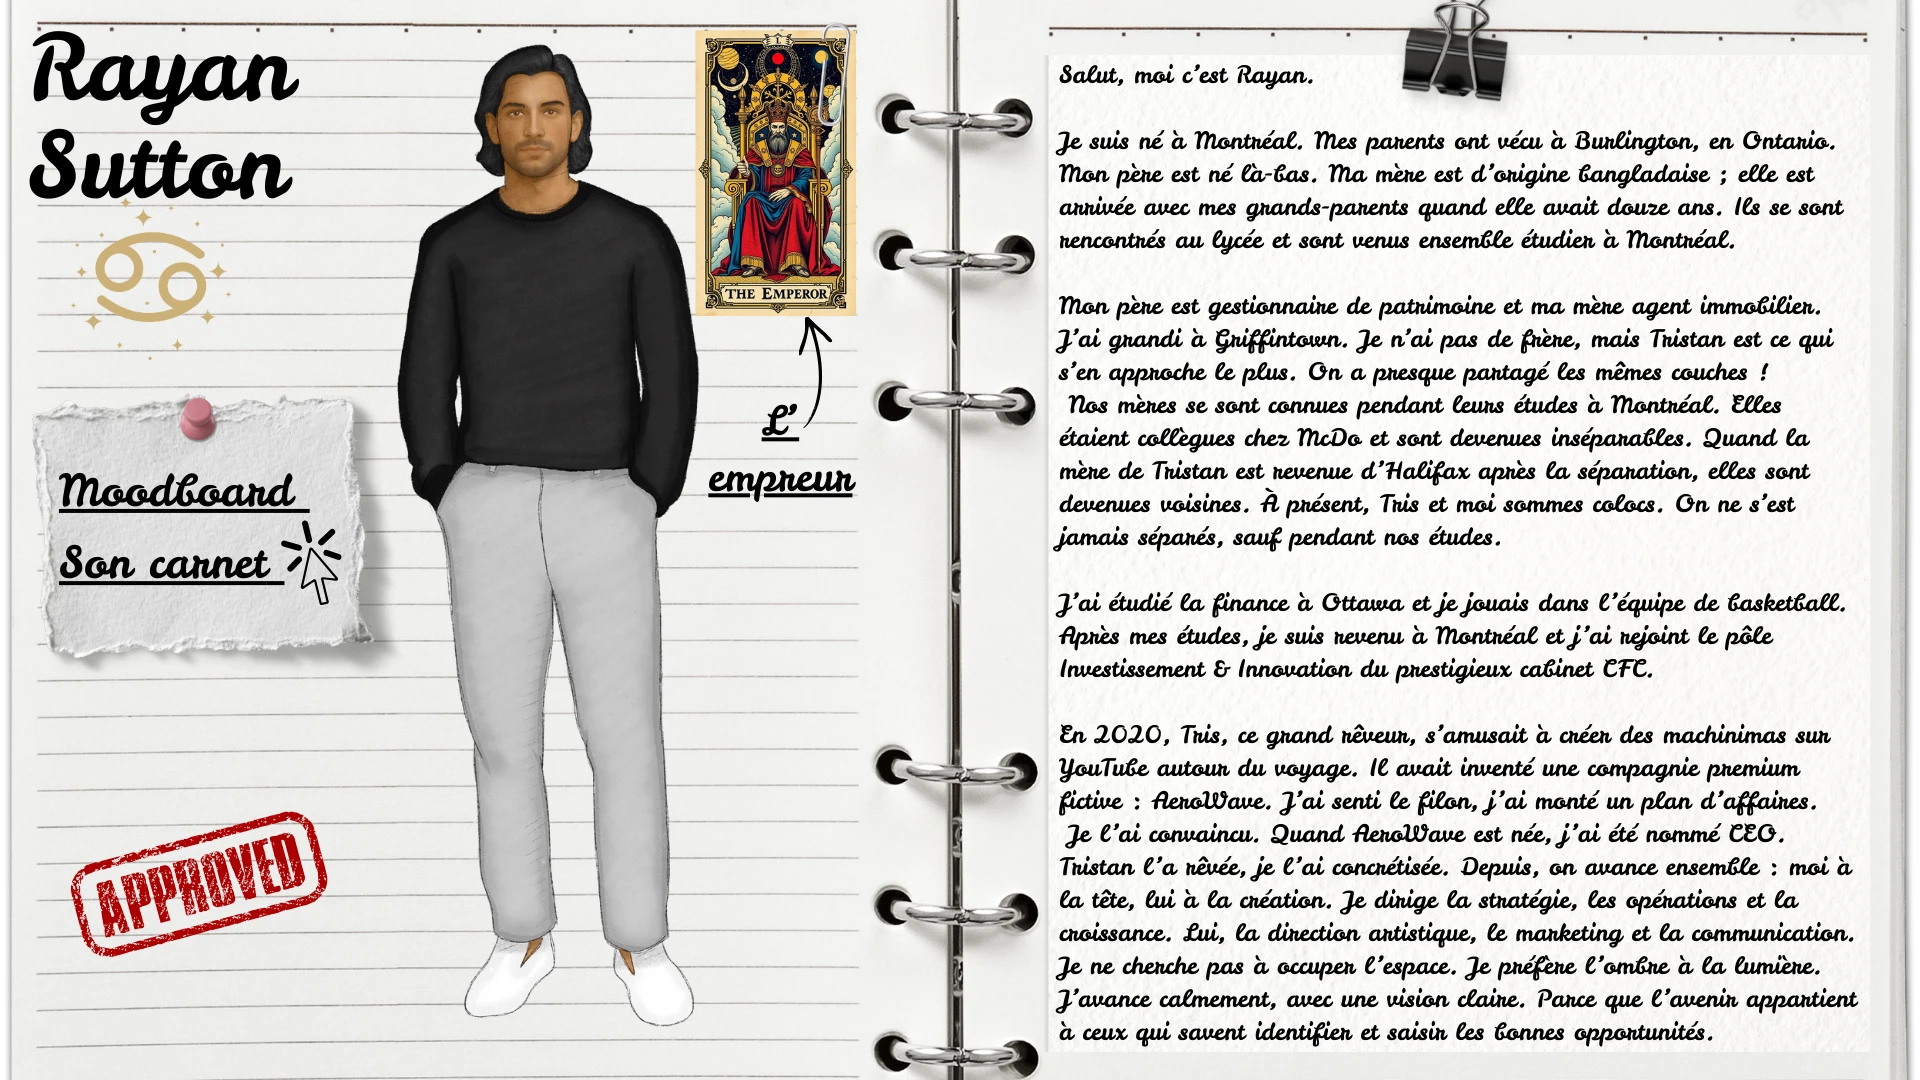 Rayan
Sutton
I.
THE EMPEROR
L'
empreur
Moodboard
Son carnet
APPROVED
Salut, moi c'est Rayan.
Je suis né à Montréal. Mes parents ont vécu à Burlington, en Ontario.
Mon père est né là-bas. Ma mère est d'origine bangladaise ; elle est
arrivée avec mes grands-parents quand elle avait douze ans. Ils se sont
rencontrés au lycée et sont venus ensemble étudier à Montréal.
Mon père est gestionnaire de patrimoine et ma mère agent immobilier.
J'ai grandi à Griffintown. Je n'ai pas de frère, mais Tristan est ce qui
s'en approche le plus. On a presque partagé les mêmes couches !
Nos mères se sont connues pendant leurs études à Montréal. Elles
étaient collègues chez McDo et sont devenues inséparables. Quand la
mère de Tristan est revenue d'Halifax après la séparation, elles sont
devenues voisines. À présent, Tris et moi sommes colocs. On ne s'est
jamais séparés, sauf pendant nos études.
J'ai étudié la finance à Ottawa et je jouais dans l'équipe de basketball.
Après mes études, je suis revenu à Montréal et j'ai rejoint le pôle
Investissement & Innovation du prestigieux cabinet CFC.
En 2020, Tris, ce grand rêveur, s'amusait à créer des machinimas sur
YouTube autour du voyage. Il avait inventé une compagnie premium
fictive : AeroWave. J'ai senti le filon, j'ai monté un plan d'affaires.
Je l'ai convaincu. Quand AeroWave est née, j'ai été nommé CEO.
Tristan l'a rêvée, je l'ai concrétisée. Depuis, on avance ensemble : moi à
la tête, lui à la création. Je dirige la stratégie, les opérations et la
croissance. Lui, la direction artistique, le marketing et la communication.
Je ne cherche pas à occuper l'espace. Je préfère l'ombre à la lumière.
J'avance calmement, avec une vision claire. Parce que l'avenir appartient
à ceux qui savent identifier et saisir les bonnes opportunités.